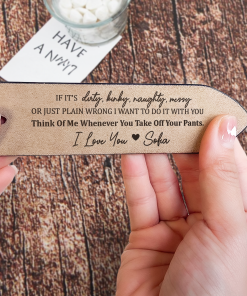 HAVE
A
IF IT'S dirty, kinky, naughty, messy
OR JUST PLAIN WRONG I WANT TO DO IT WITH YOU
Think Of Me Whenever You Take Off Your Pants.
I Love You ♥ Sofia